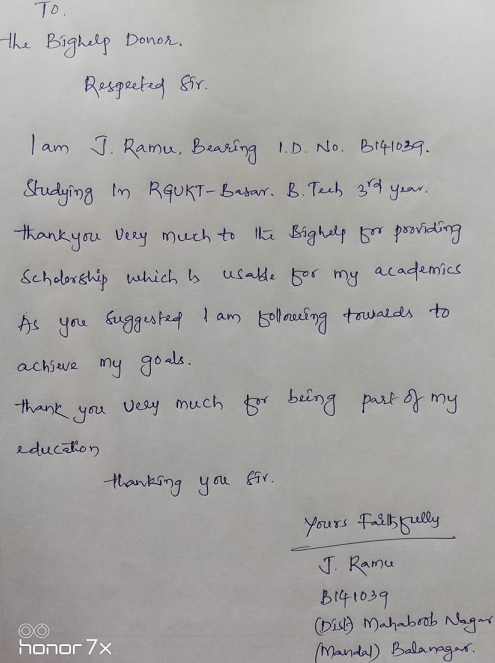 To.
the Bighelp Donor.
Respected Sir.
I am J. Ramu, Bearing I.D. No. B141039.
Studying In RGUKT-Basar. B.Tech 3rd year.
thankyou very much to the Bighelp for providing
Scholorship which is usable for my academics
As you suggested I am following towards to
achieve my goals.
thank you very much for being part of my
education
thanking you Sir.
Yours Faithfully
J. Ramu
B141039
(Dist) Mahaboob Nagar
(Mandal) Balanagar.
honor 7x